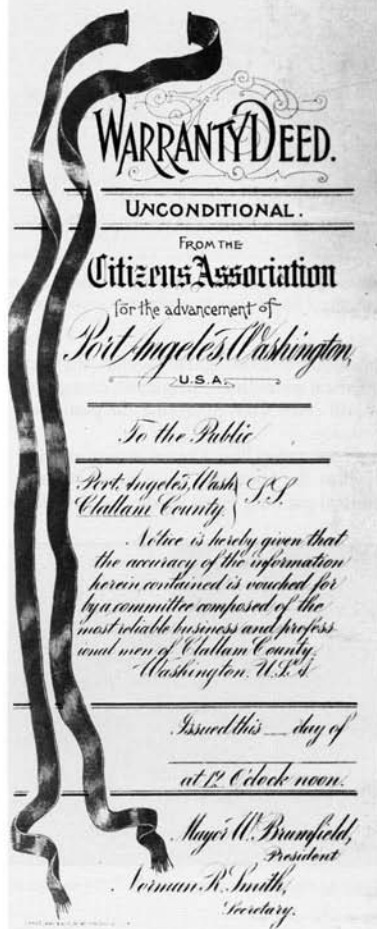 WARRANTY DEED.
UNCONDITIONAL.
FROM THE
Citizens Association
for the advancement of
Port Angeles, Washington,
U.S.A.
To the Public
Port Angeles, Wash
Clallam County } S.S.
Notice is hereby given that
the accuracy of the information
herein contained is vouched for
by a committee composed of the
most reliable business and profess
ional men of Clallam County,
Washington. U.S.A.
Issued this __ day of
at 12 O'clock noon.
Mayor W. Brumfield,
President
Norman R. Smith,
Secretary.